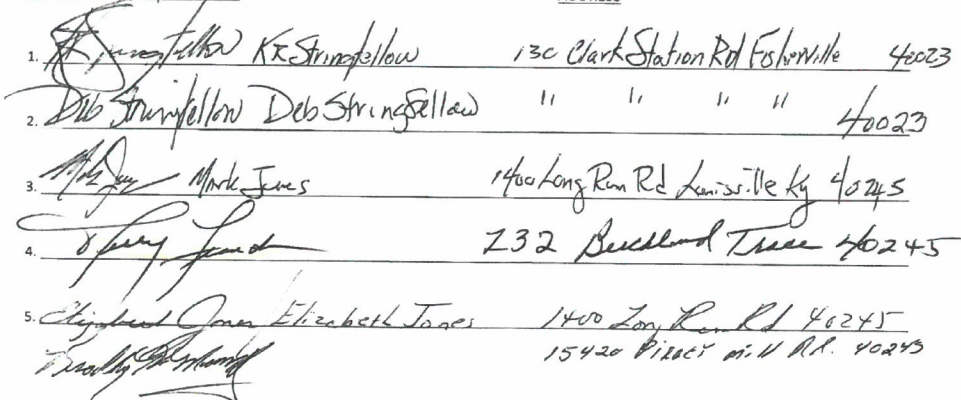 ADDRESS
1. KR Stringfellow 130 Clark Station Rd Fisherville 40023
2. Deb Stringfellow Deb Stringfellow " " " " 40023
3. Mark Jones 1400 Long Run Rd Louisville Ky 40245
4. 232 Beechland Trace 40245
5. Elizabeth Jones Elizabeth Jones 1400 Long Run Rd 40245
15420 mill Rd. 40245